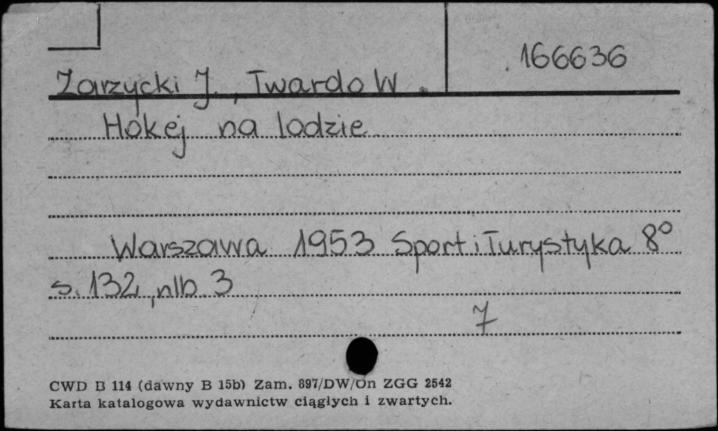 166636
Zarzycki J., Twardo W.
Hokej na lodzie
Warszawa 1953 Sport i Turystyka 8°
s. 132, nlb. 3
7
CWD B 114 (dawny B 15b) Zam. 897/DW/On ZGG 2542
Karta katalogowa wydawnictw ciągłych i zwartych.